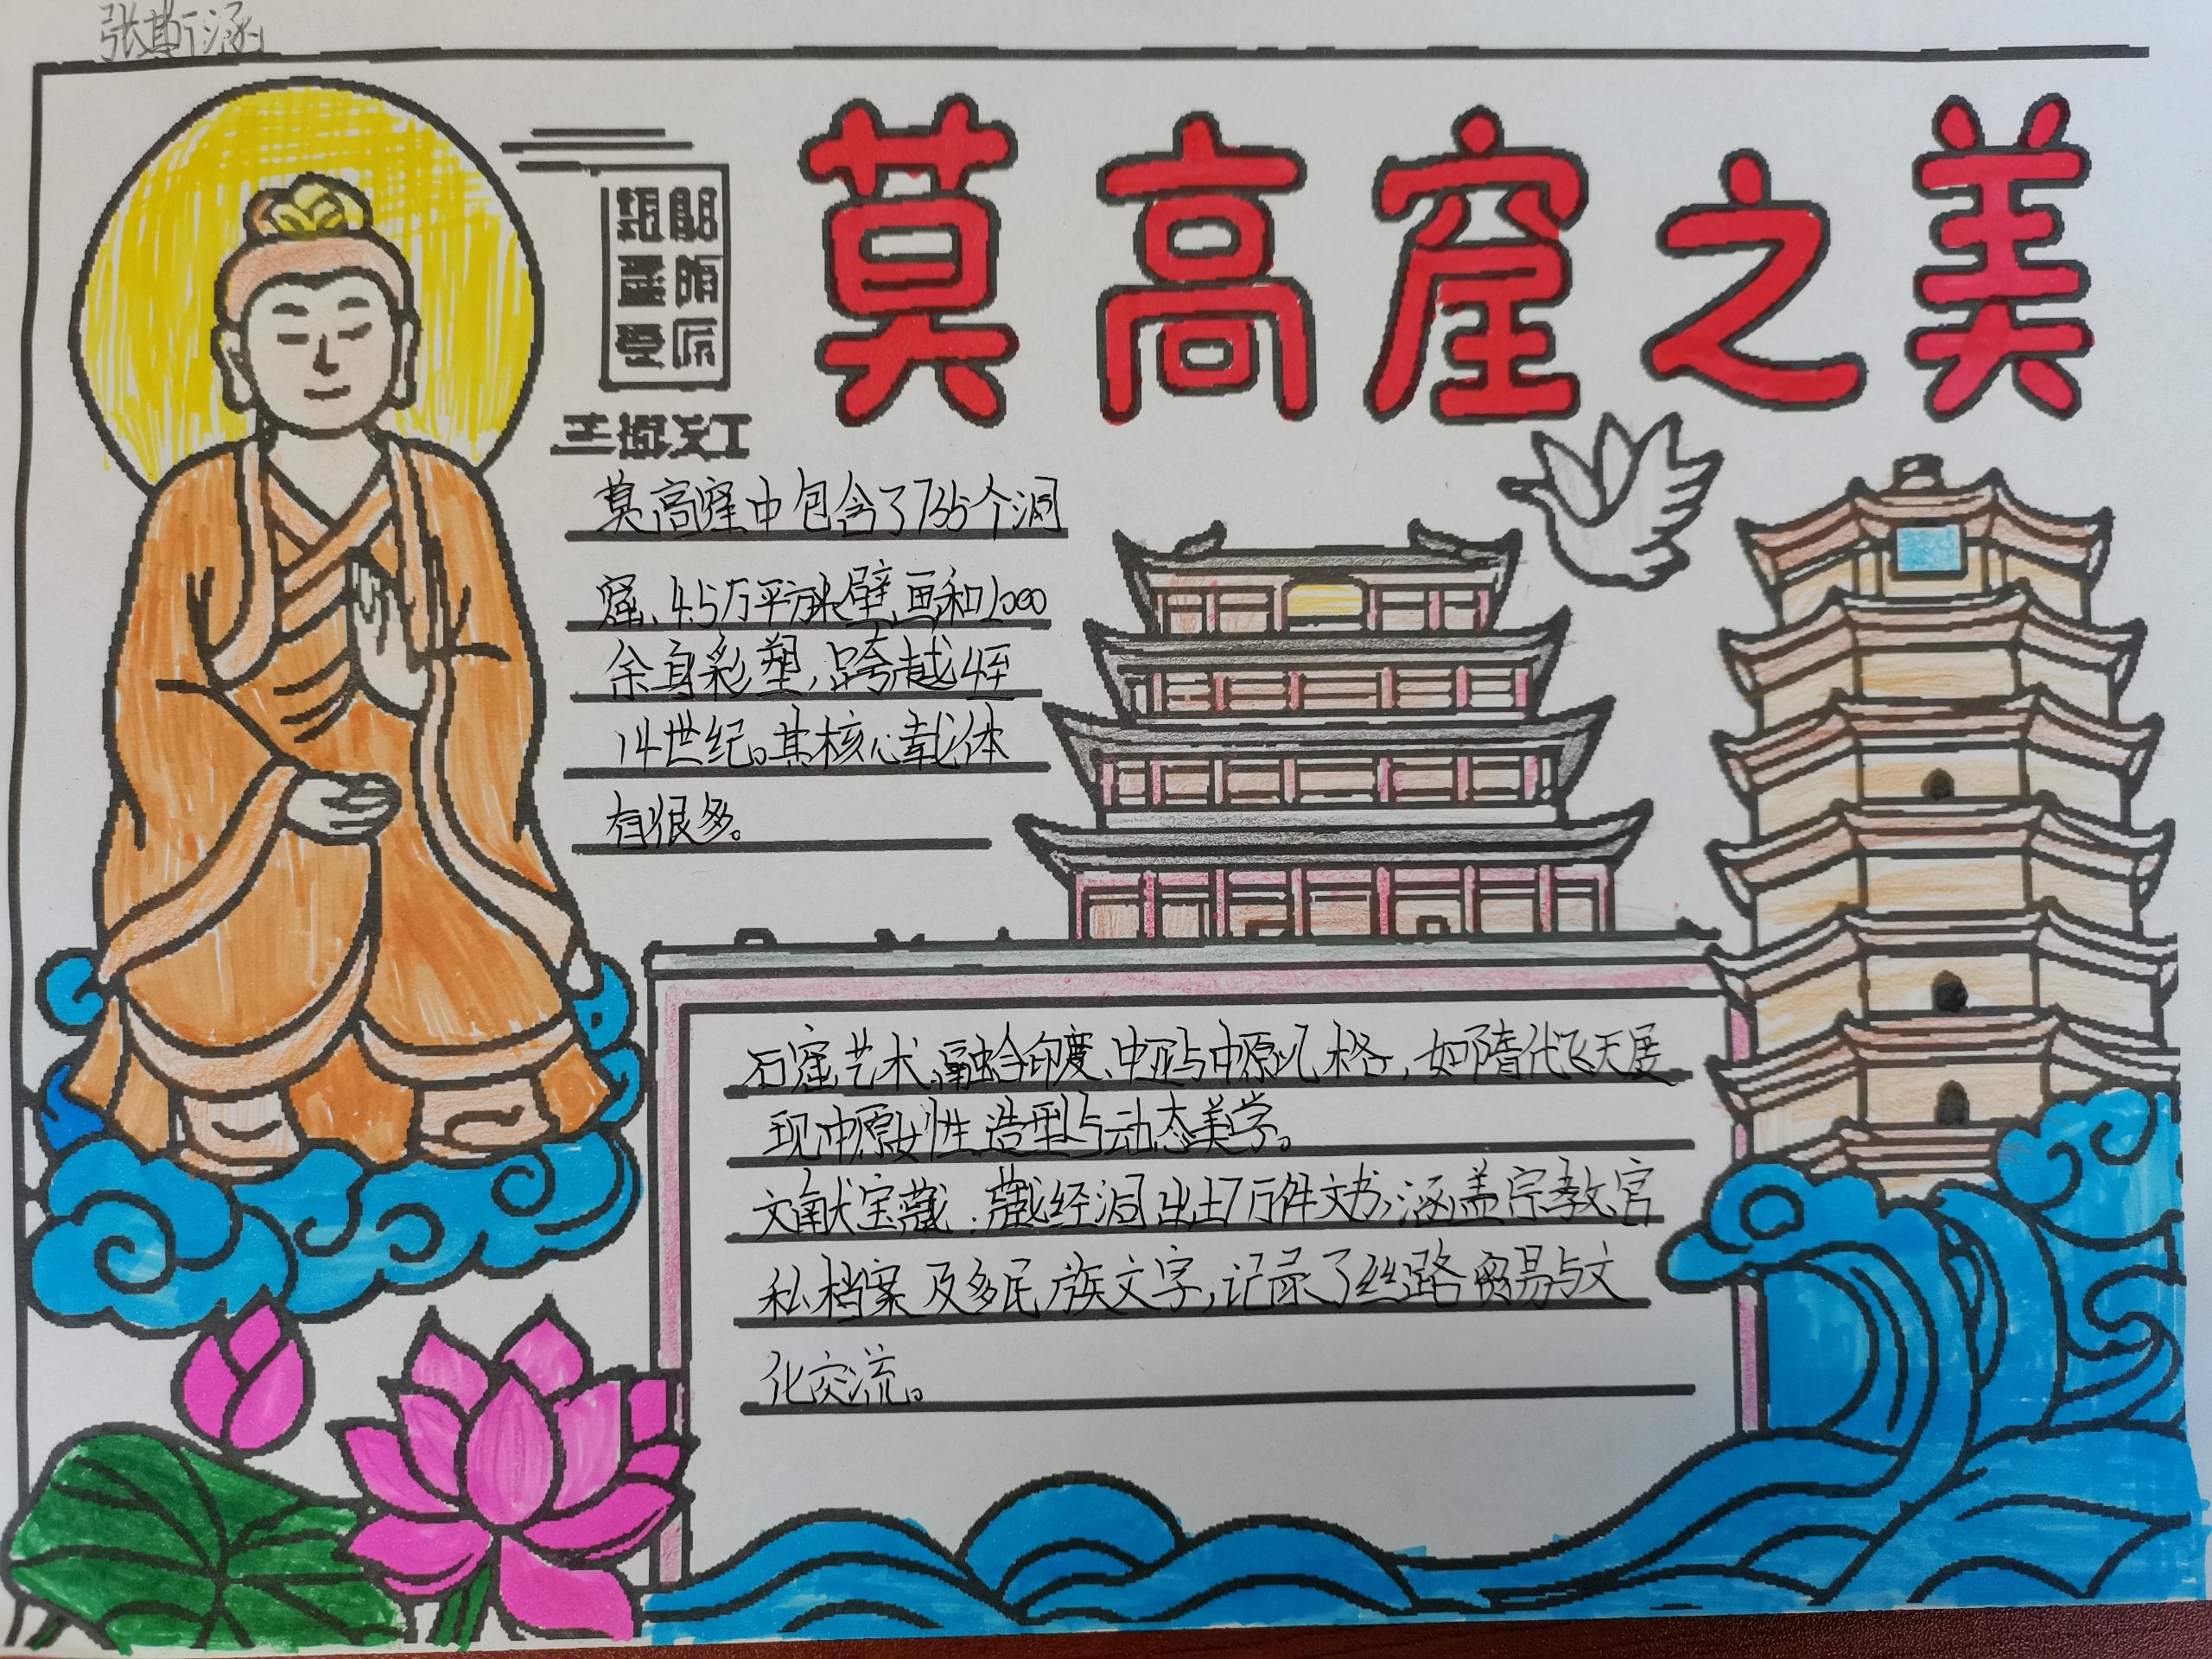 张斯涵
莫高窟之美
莫高窟中包含了735个洞
窟、4.5万平方米壁画和2000
余身彩塑，跨越4至
14世纪。其核心载体
有很多。
石窟艺术，融合印度、中亚与中原风格，如隋代飞天展
现中原女性造型与动态美学。
文献宝藏：藏经洞出土7万件文书，涵盖宗教官
私档案及多民族文字，记录了丝路贸易与文
化交流。